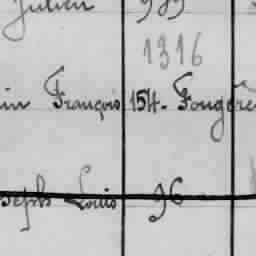 Julien 989
1316
in François 154. Fougère
seph Louis 96